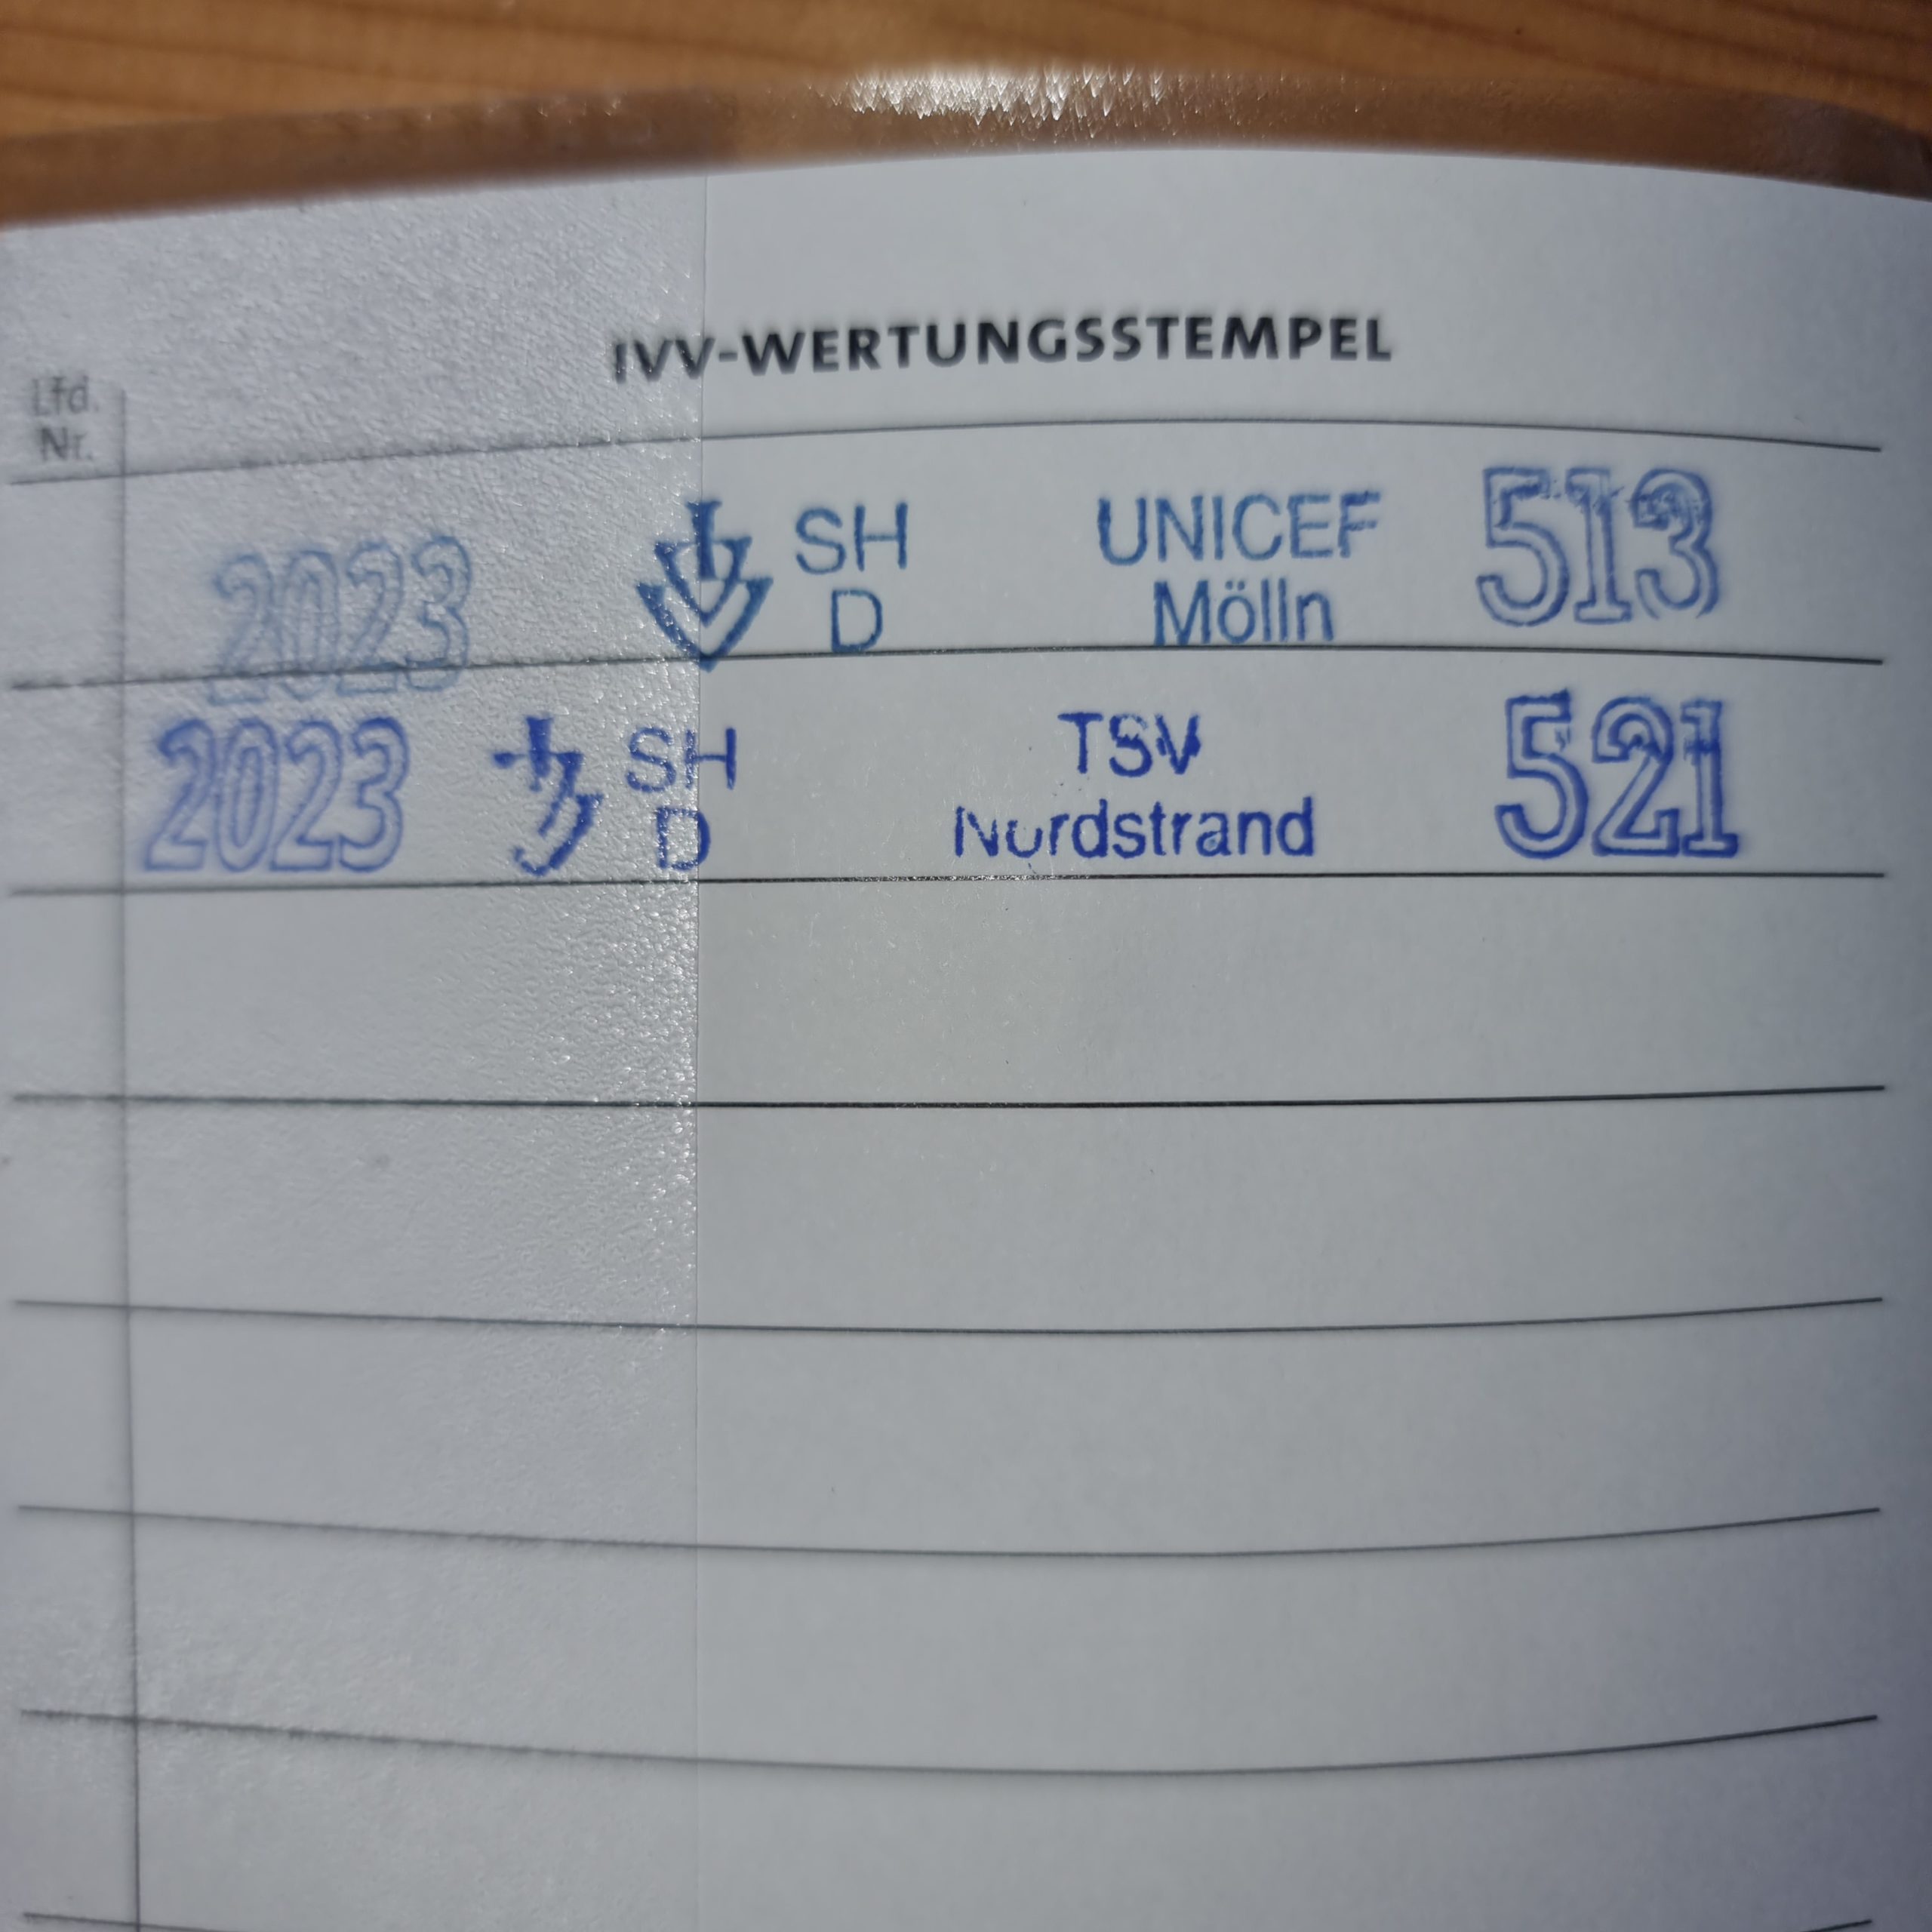 IVV-WERTUNGSSTEMPEL
Lfd.
Nr.
2023 SH UNICEF 513
D Mölln
2023 SH TSV 521
D Nordstrand